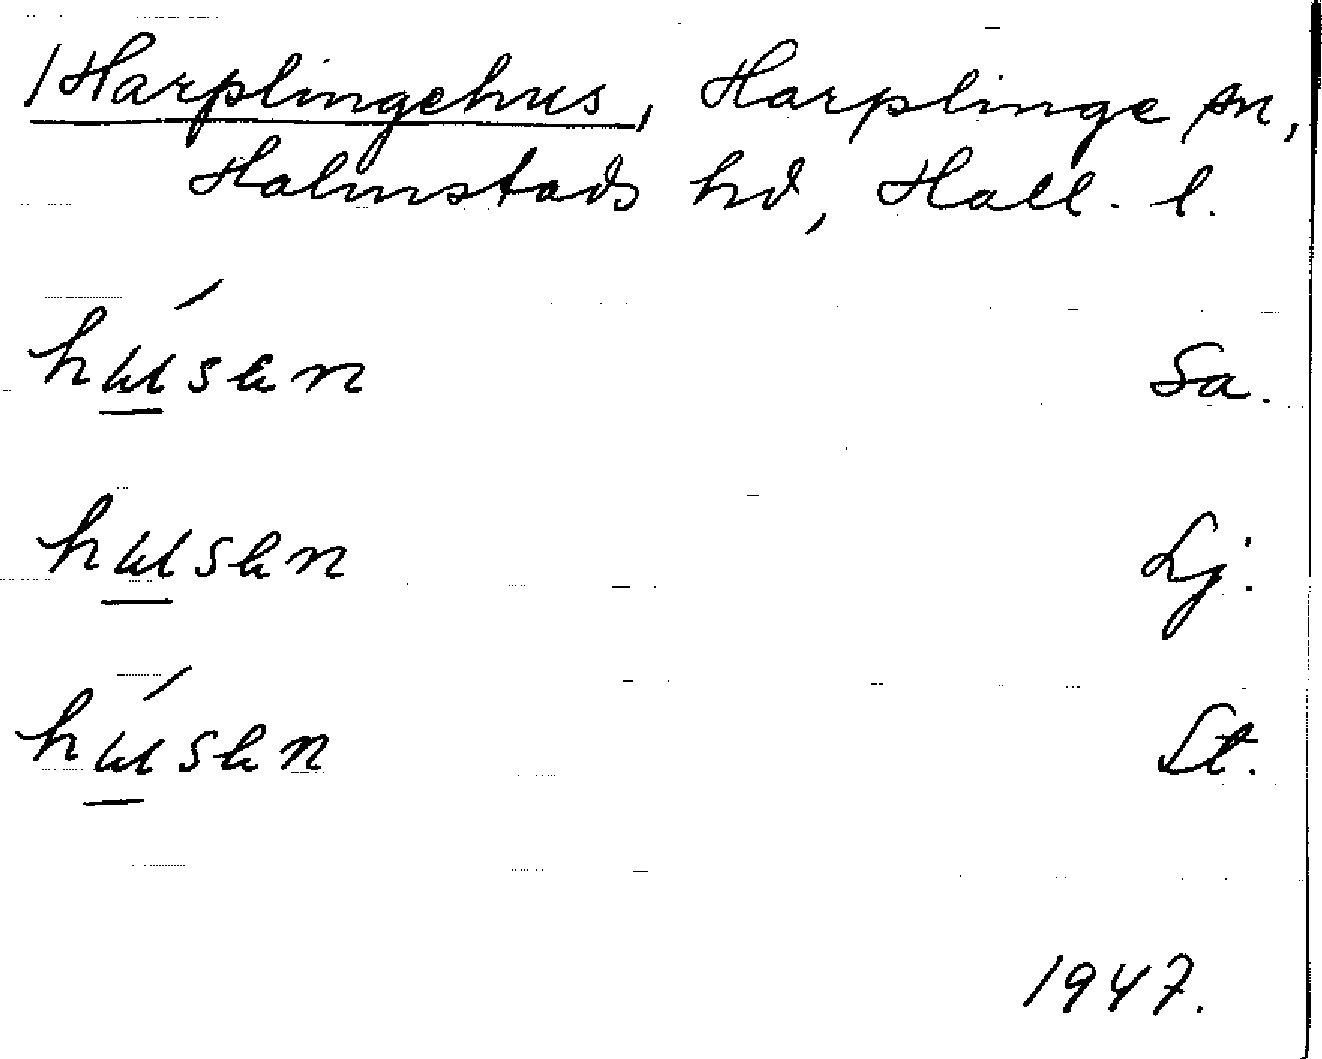 /Harplingehus, Harplinge sn,
Halmstads hd, Hall. l.
húsen Sa.
husen Lj.
húsen Lt.
1947.